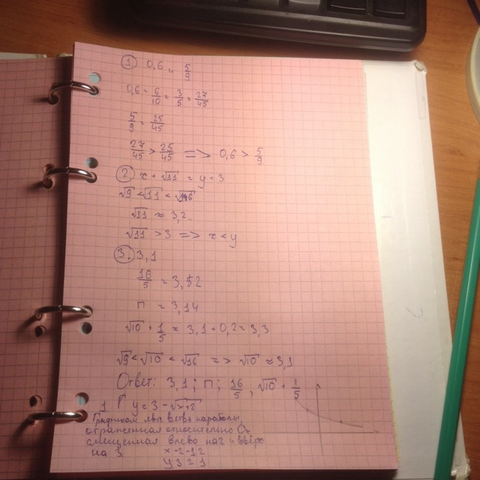 ① 0,6 и 5/9
0,6 = 6/10 = 3/5 = 27/45
5/9 = 25/45
27/45 > 25/45 => 0,6 > 5/9
② x + √11 = y + 3
√9 < √11 < √16
√11 ≈ 3,2
√11 > 3 => x < y
③. 3,1
16/5 = 3,2
п = 3,14
√10 + 1/5 ≈ 3,1 + 0,2 = 3,3
√9 < √10 < √16 => √10 ≈ 3,1
Ответ: 3,1 ; п ; 16/5 , √10 + 1/5
1 Г y = 3 - √x+2
ветвь параболы,
отраженная относительно Ox
смещенная влево на 2 и вверх
на 3.
x -2 -1 2
y 3 2 1